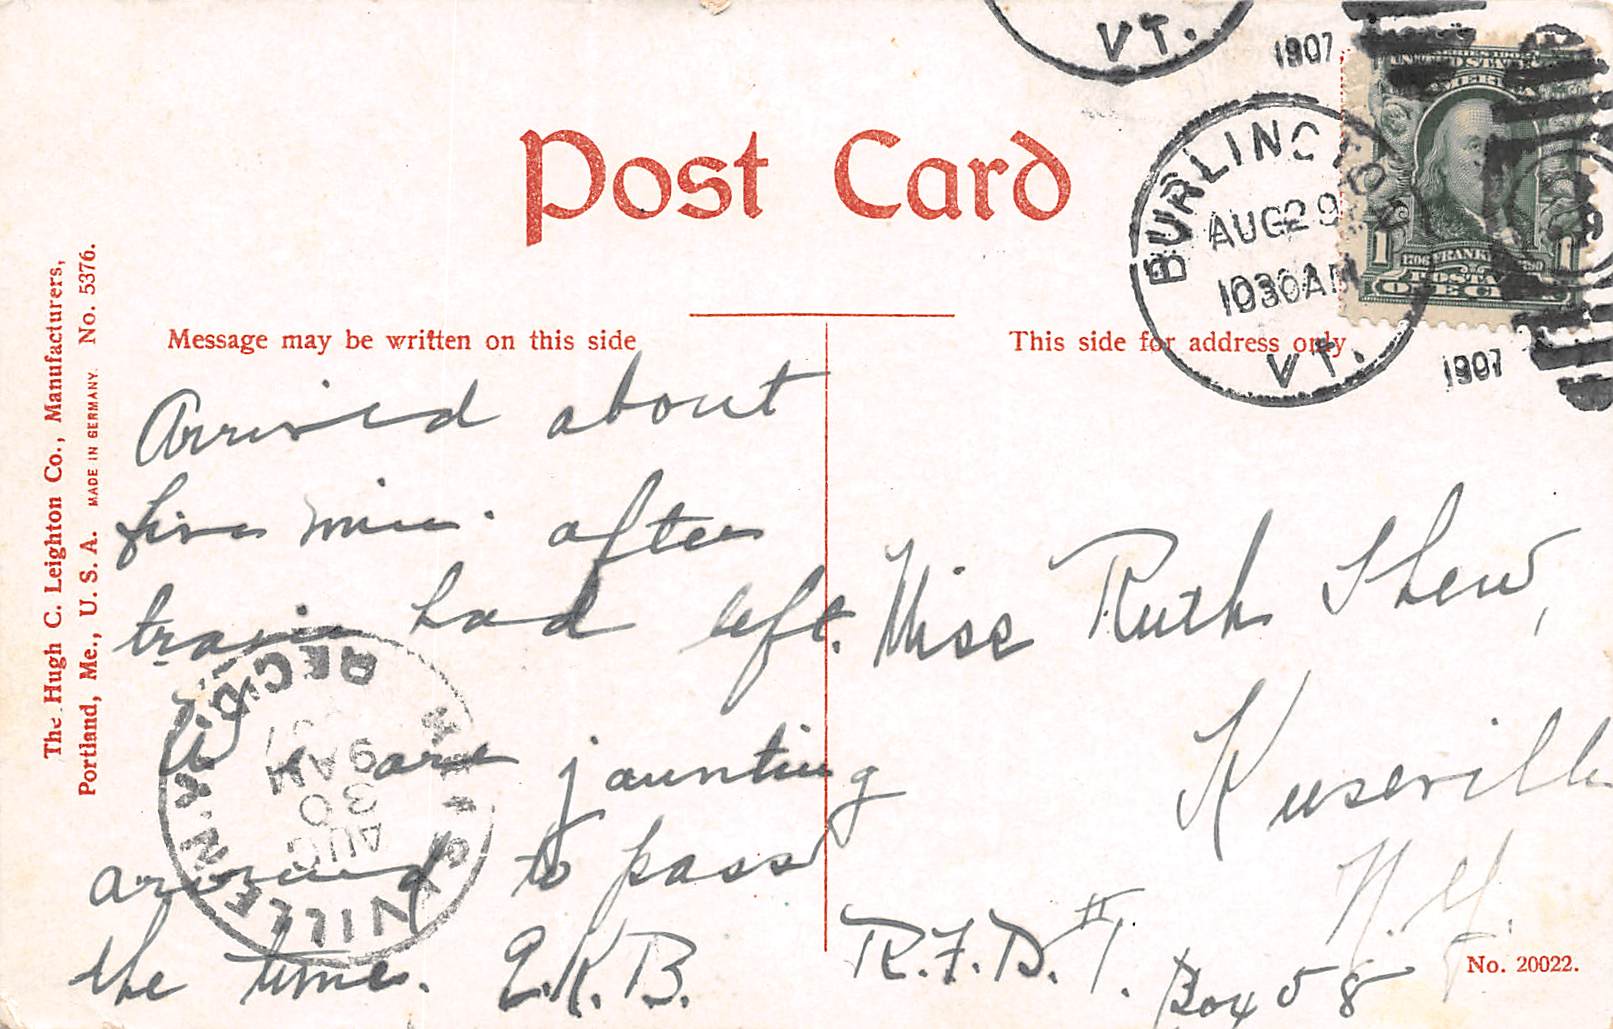 VT.
1907
UNITED STATES
AMERICA
Post Card
BURLINGTON
AUG 29
1030 AM
VT.
1907
1706 FRANKLIN 1790
POSTAGE
1 ONE CENT 1
The Hugh C. Leighton Co., Manufacturers,
Portland, Me., U. S. A. MADE IN GERMANY. No. 5376.
Message may be written on this side
This side for address only
Arrived about
five min. after
train had left.
We are jaunting
around to pass
the time. E.K.B.
Miss Ruth Shew,
N.Y.
R.F.D. #1.
Box 58
No. 20022.
VILLE N.Y.
REC'D.
AUG
30
9 AM